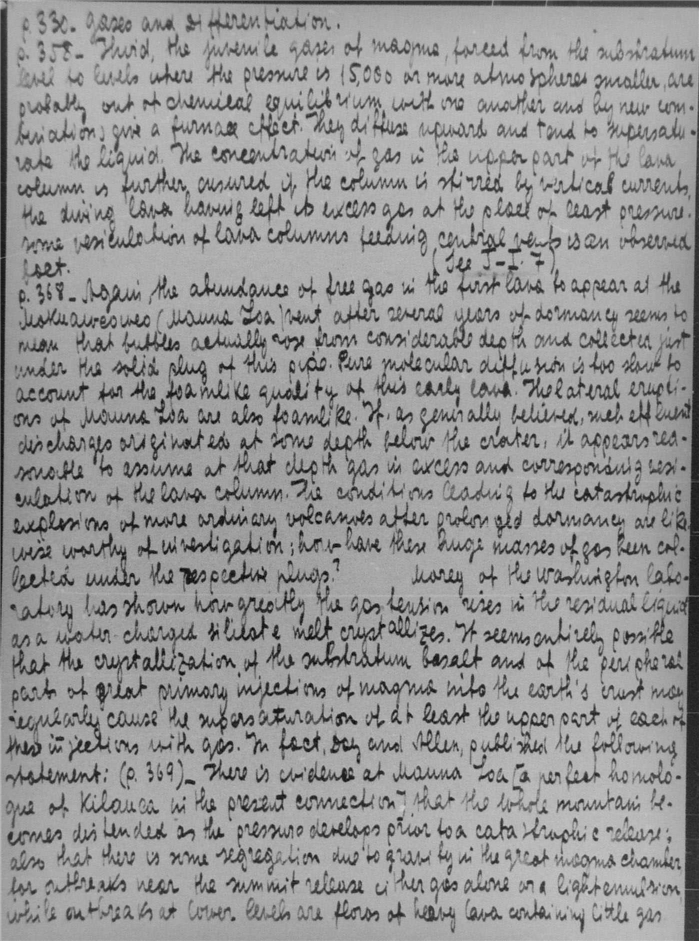 p. 330- gases and Differentiation.
p. 358- Third, the juvenile gases of magma, forced from the substratum
level to levels where the pressure is 15,000 or more atmospheres smaller, are
probably out of chemical equilibrium with one another and by new com-
binations give a furnace effect. They diffuse upward and tend to supersatu-
rate the liquid. The concentration of gas in the upper part of the lava
column is further ensured if the column is stirred by vertical currents,
the diving lava having left its excess gas at the place of least pressure.
some vesiculation of lava columns feeding central vents is an observed
fact. (See I-I. 7)
p. 368- Again, the abundance of free gas in the first lava to appear at the
Mokuaweoweo (Mauna Loa) vent after several years of dormancy seems to
mean that bubbles actually rose from considerable depth and collected just
under the solid plug of this pipe. Pure molecular diffusion is too slow to
account for the foamlike quality of this early lava. The lateral erupti-
ons of Mauna Loa are also foamlike. If, as generally believed, such effluent
discharges originated at some depth below the crater, it appears rea-
sonable to assume at that depth gas in excess and corresponding vesi-
culation of the lava column. The conditions leading to the catastrophic
explosions of more ordinary volcanoes after prolonged dormancy are like
wise worthy of investigation; how have these huge masses of gas been col-
lected under the respective plugs? Morey of the Washington labo-
ratory has shown how greatly the gas tension rises in the residual liquid
as a water-charged silicate melt crystallizes. It seems entirely possible
that the crystallization of the substratum basalt and of the peripheral
parts of great primary injections of magma into the earth's crust may
regularly cause the supersaturation of at least the upper part of each of
these injections with gas. In fact, Day and Allen, published the following
statement: (p. 369)- There is evidence at Mauna Loa [a perfect homolo-
gue of Kilauea in the present connection] that the whole mountain be-
comes distended as the pressure develops prior to a catastrophic release;
also that there is some segregation due to gravity in the great magma chamber
for outbreaks near the summit release either gas alone or a light emulsion,
while outbreaks at lower levels are floros of heavy lava containing little gas.